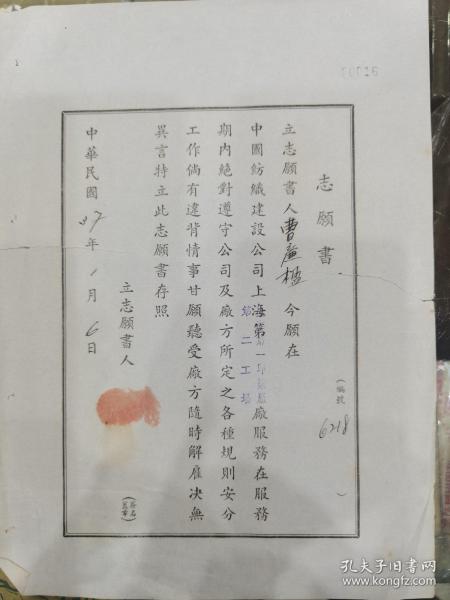 志願書
(編號 6218 )
立志願書人曹 今願在
中國紡織建設公司上海第一印染廠服務在服務
第二工場
期內絶對遵守公司及廠方所定之各種規則安分
工作倘有違背情事甘願聽受廠方隨時解雇决無
異言特立此志願書存照
立志願書人
(簽名蓋章)
中華民國37年1月6日
孔夫子旧书网
www.kongfz.com